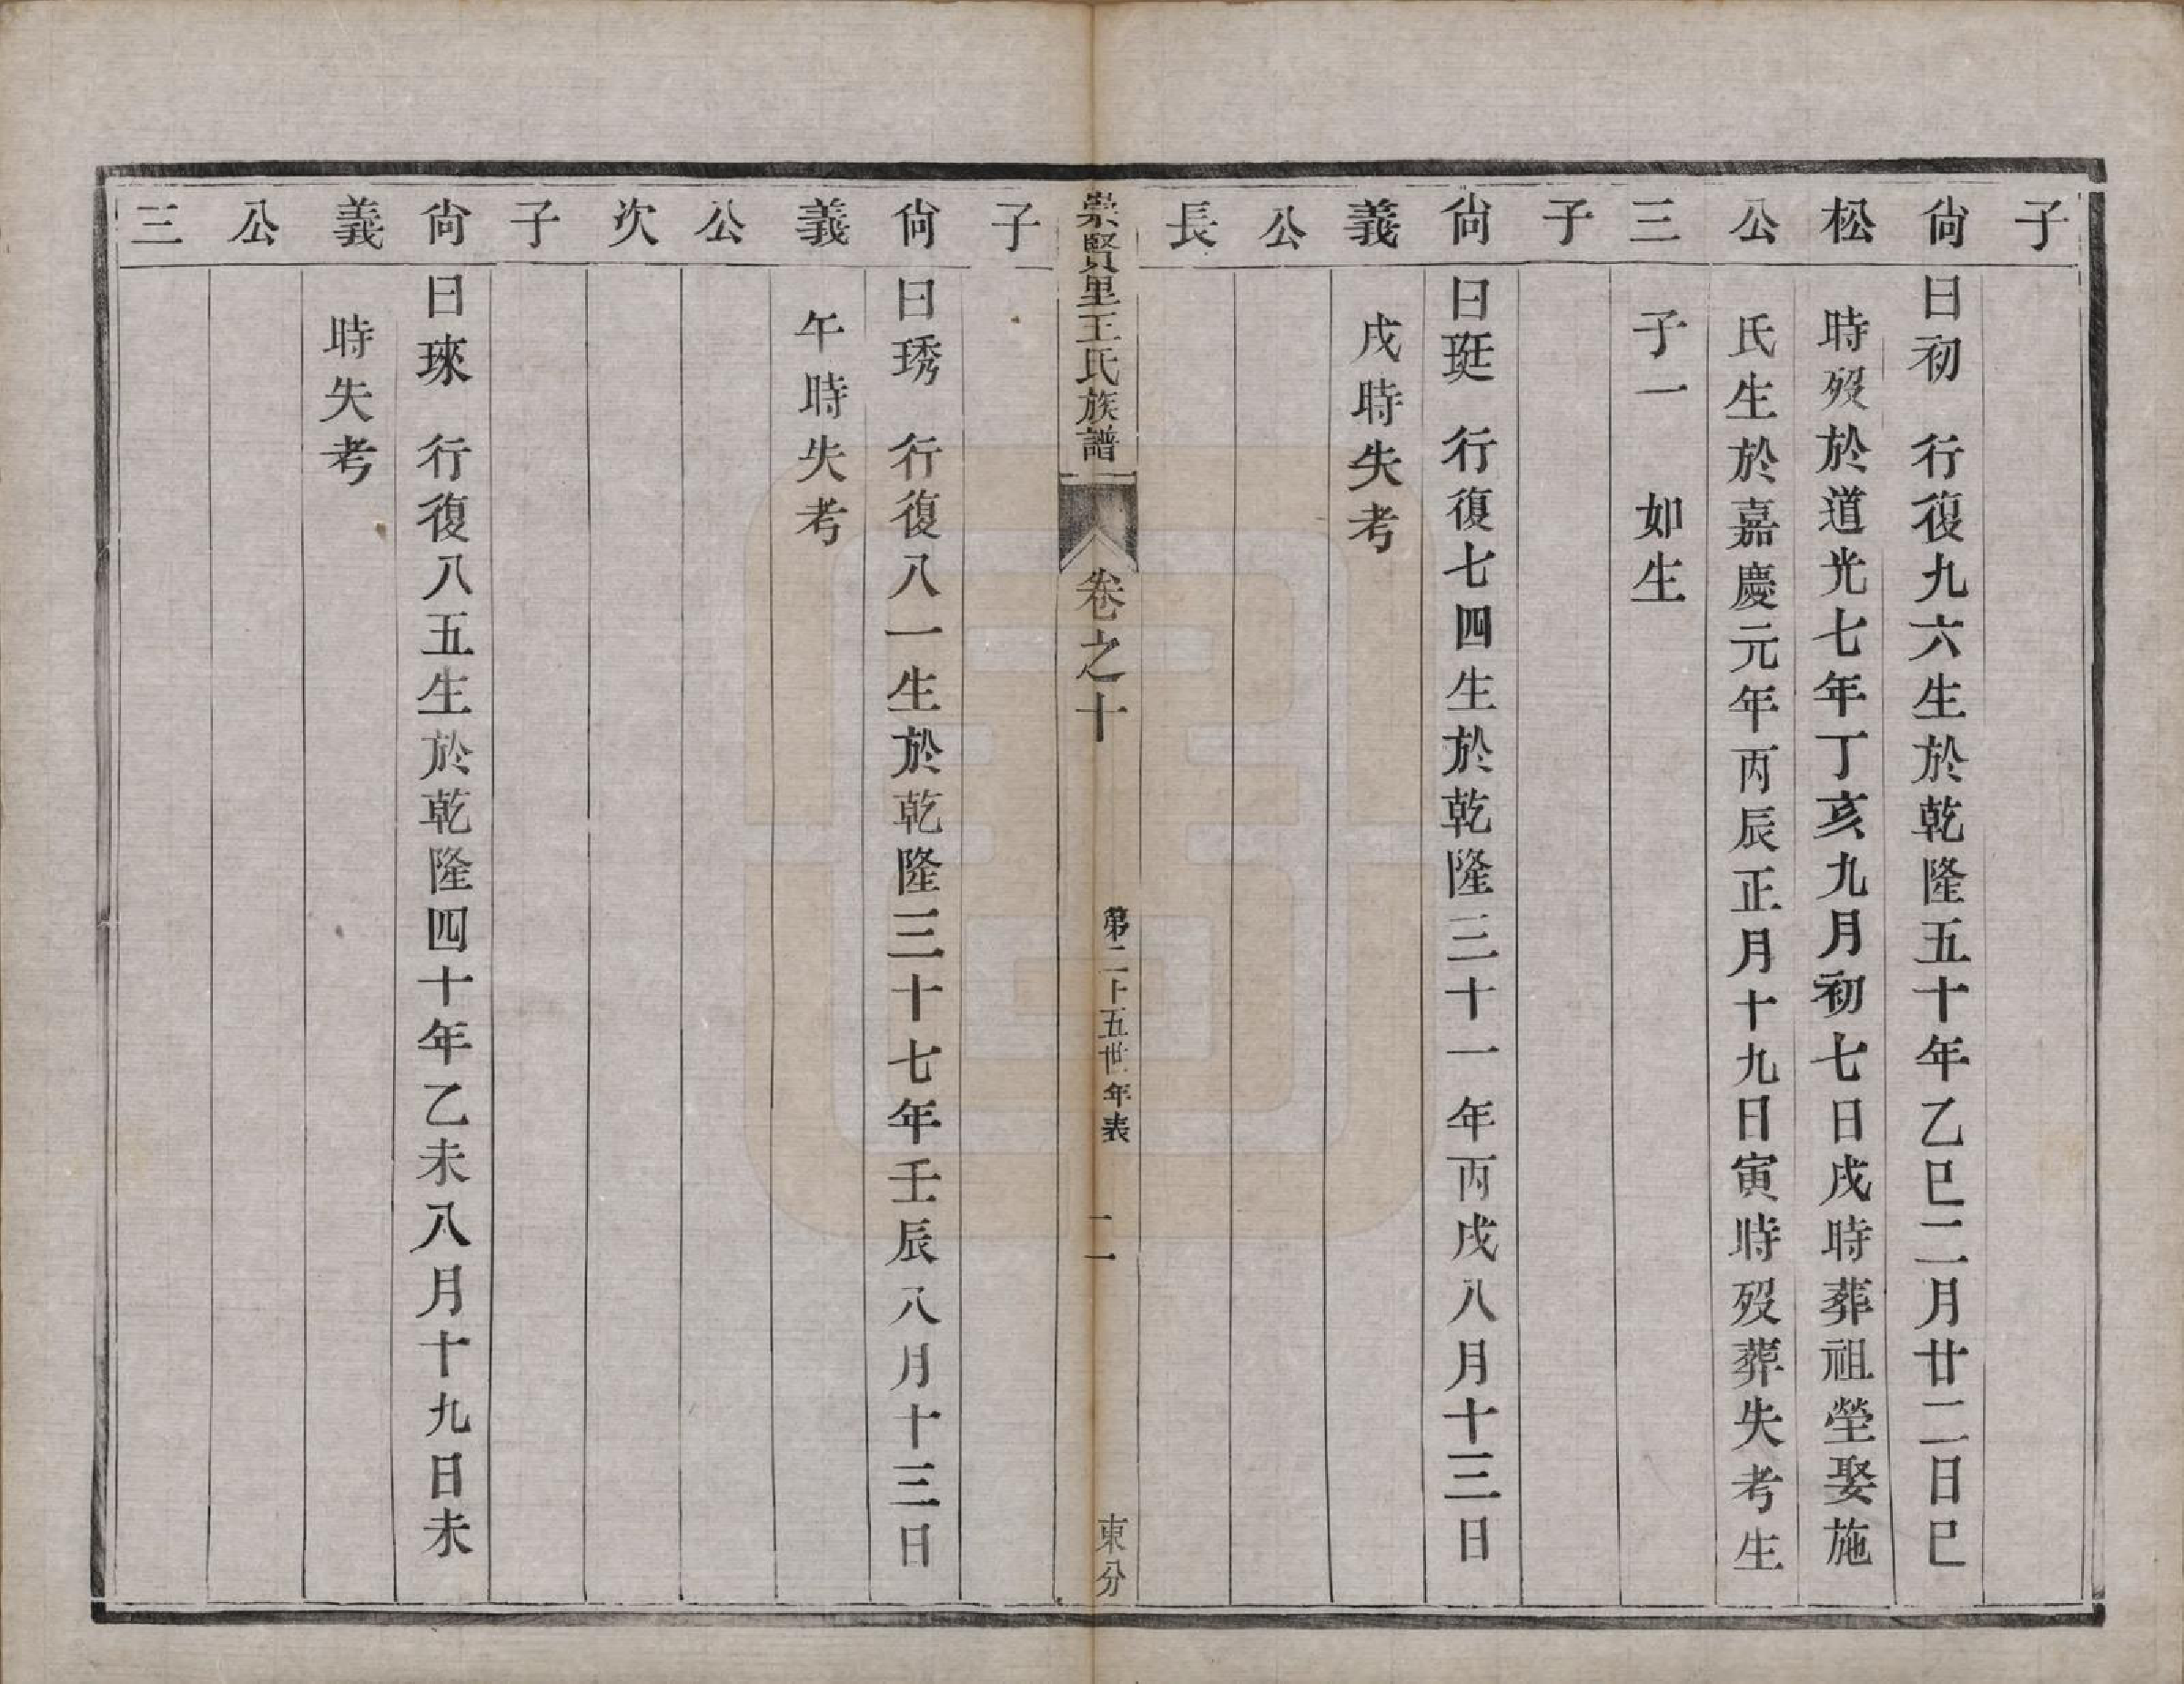 子
尙 曰初 行復九六生於乾隆五十年乙巳二月廿二日巳
松 時歿於道光七年丁亥九月初七日戌時葬祖塋娶施
公 氏生於嘉慶元年丙辰正月十九日寅時歿葬失考生
三 子一 如生
子
尙 曰珽 行復七四生於乾隆三十一年丙戌八月十三日
義 戌時失考
公
長
崇賢里王氏族譜 卷之十 第二十五世年表 二 東分
子
尙 曰琇 行復八一生於乾隆三十七年壬辰八月十三日
義 午時失考
公
次
子
尙 曰琜 行復八五生於乾隆四十年乙未八月十九日未
義 時失考
公
三